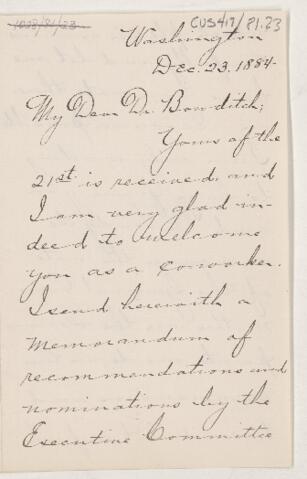 1083/81/23
CUS417/81.23
Washington
Dec. 23. 1884-
My Dear Dr. Bowditch;
Yours of the
21st is received, and
I am very glad in-
deed to welcome
you as a coworker.
I send herewith a
memorandum of
recommendations and
nominations by the
Executive Committee